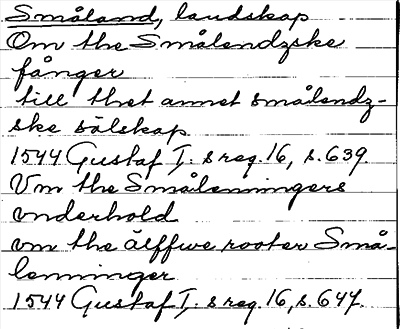 Småland, landskap
Om the Smålendzske
fånger
till thet annet smålendz-
ske sälskap
1544 Gustaf I:s reg. 16, s. 639.
Vm the Smålenningers
vnderhold
vm the älffwe rooter Små-
lenninger
1544 Gustaf I:s reg. 16, s. 647.